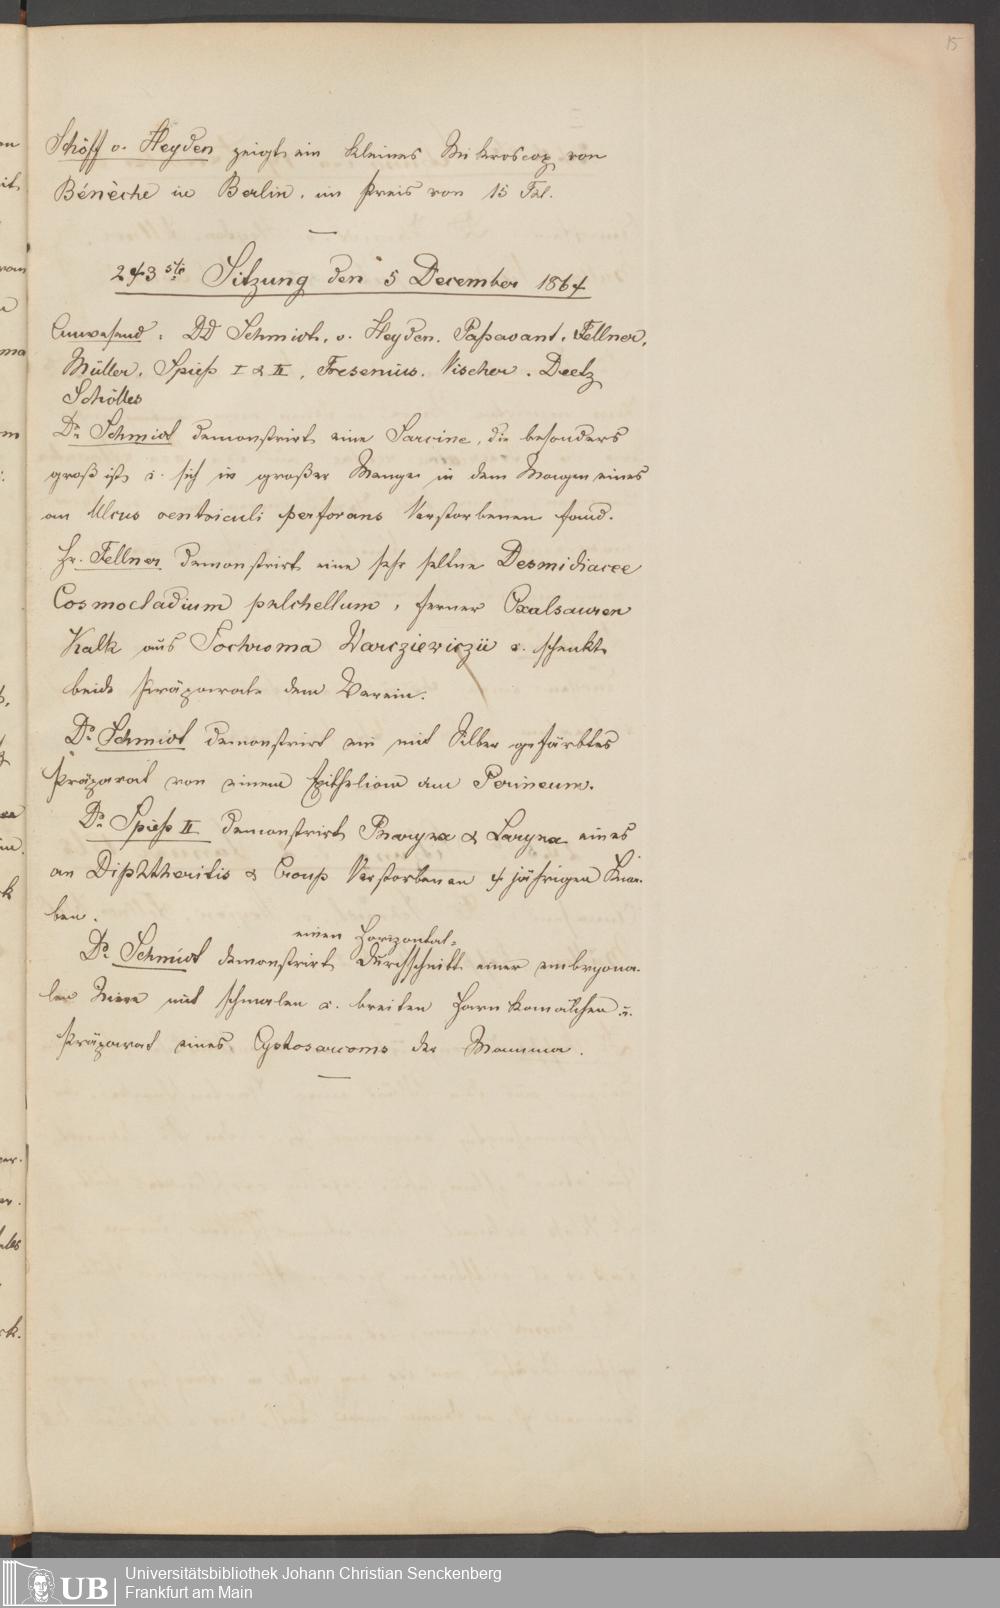 15
Schöff v. Heyden zeigt ein kleines Mikroscop von
Bénèche in Berlin, im Preis von 15 Tal.
243ste Sitzung den 5 December 1864
Anwesend: DD Schmidt, v. Heyden, Paßavant, Fellner,
Müller, Spieß I & II, Fresenius, Vischer, Deetz
Schölles
Dr. Schmidt demonstrirt eine Sarcine, die besonders
groß ist u. sich in großer Menge in dem Magen eines
an Ulcus ventriculi perforans Verstorbenen fand.
Hr. Fellner demonstrirt eine sehr seltne Desmidiacee
Cosmocladium pulchellum, ferner Oxalsauren
Kalk aus Jochroma Warcziewiczii u. schenkt
beide Präparate dem Verein.
Dr. Schmidt demonstrirt ein mit Silber gefärbtes
Präparat von einem Epitheliom am Perineum.
Dr. Spieß II demonstrirt Pharynx & Larynx eines
an Diphtheritis & Croup Verstorbenen 4 jährigen Kna-
ben.
einen Horizontal-
Dr. Schmidt demonstrirt Durchschnitt einer embryona-
len Niere mit schmalen u. breiten Harnkanälchen u.
Präparat eines Cystosarcoms der Mamma.
UB
Universitätsbibliothek Johann Christian Senckenberg
Frankfurt am Main